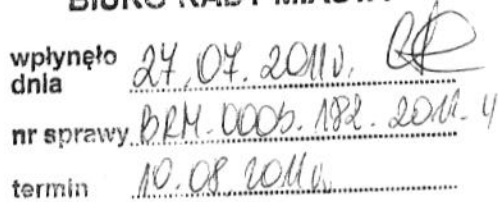 BIURO RADY MIASTA
wpłynęło dnia 27.07.2011r.
nr sprawy BRM.0005.182.2011.4
termin 10.08.2011r.